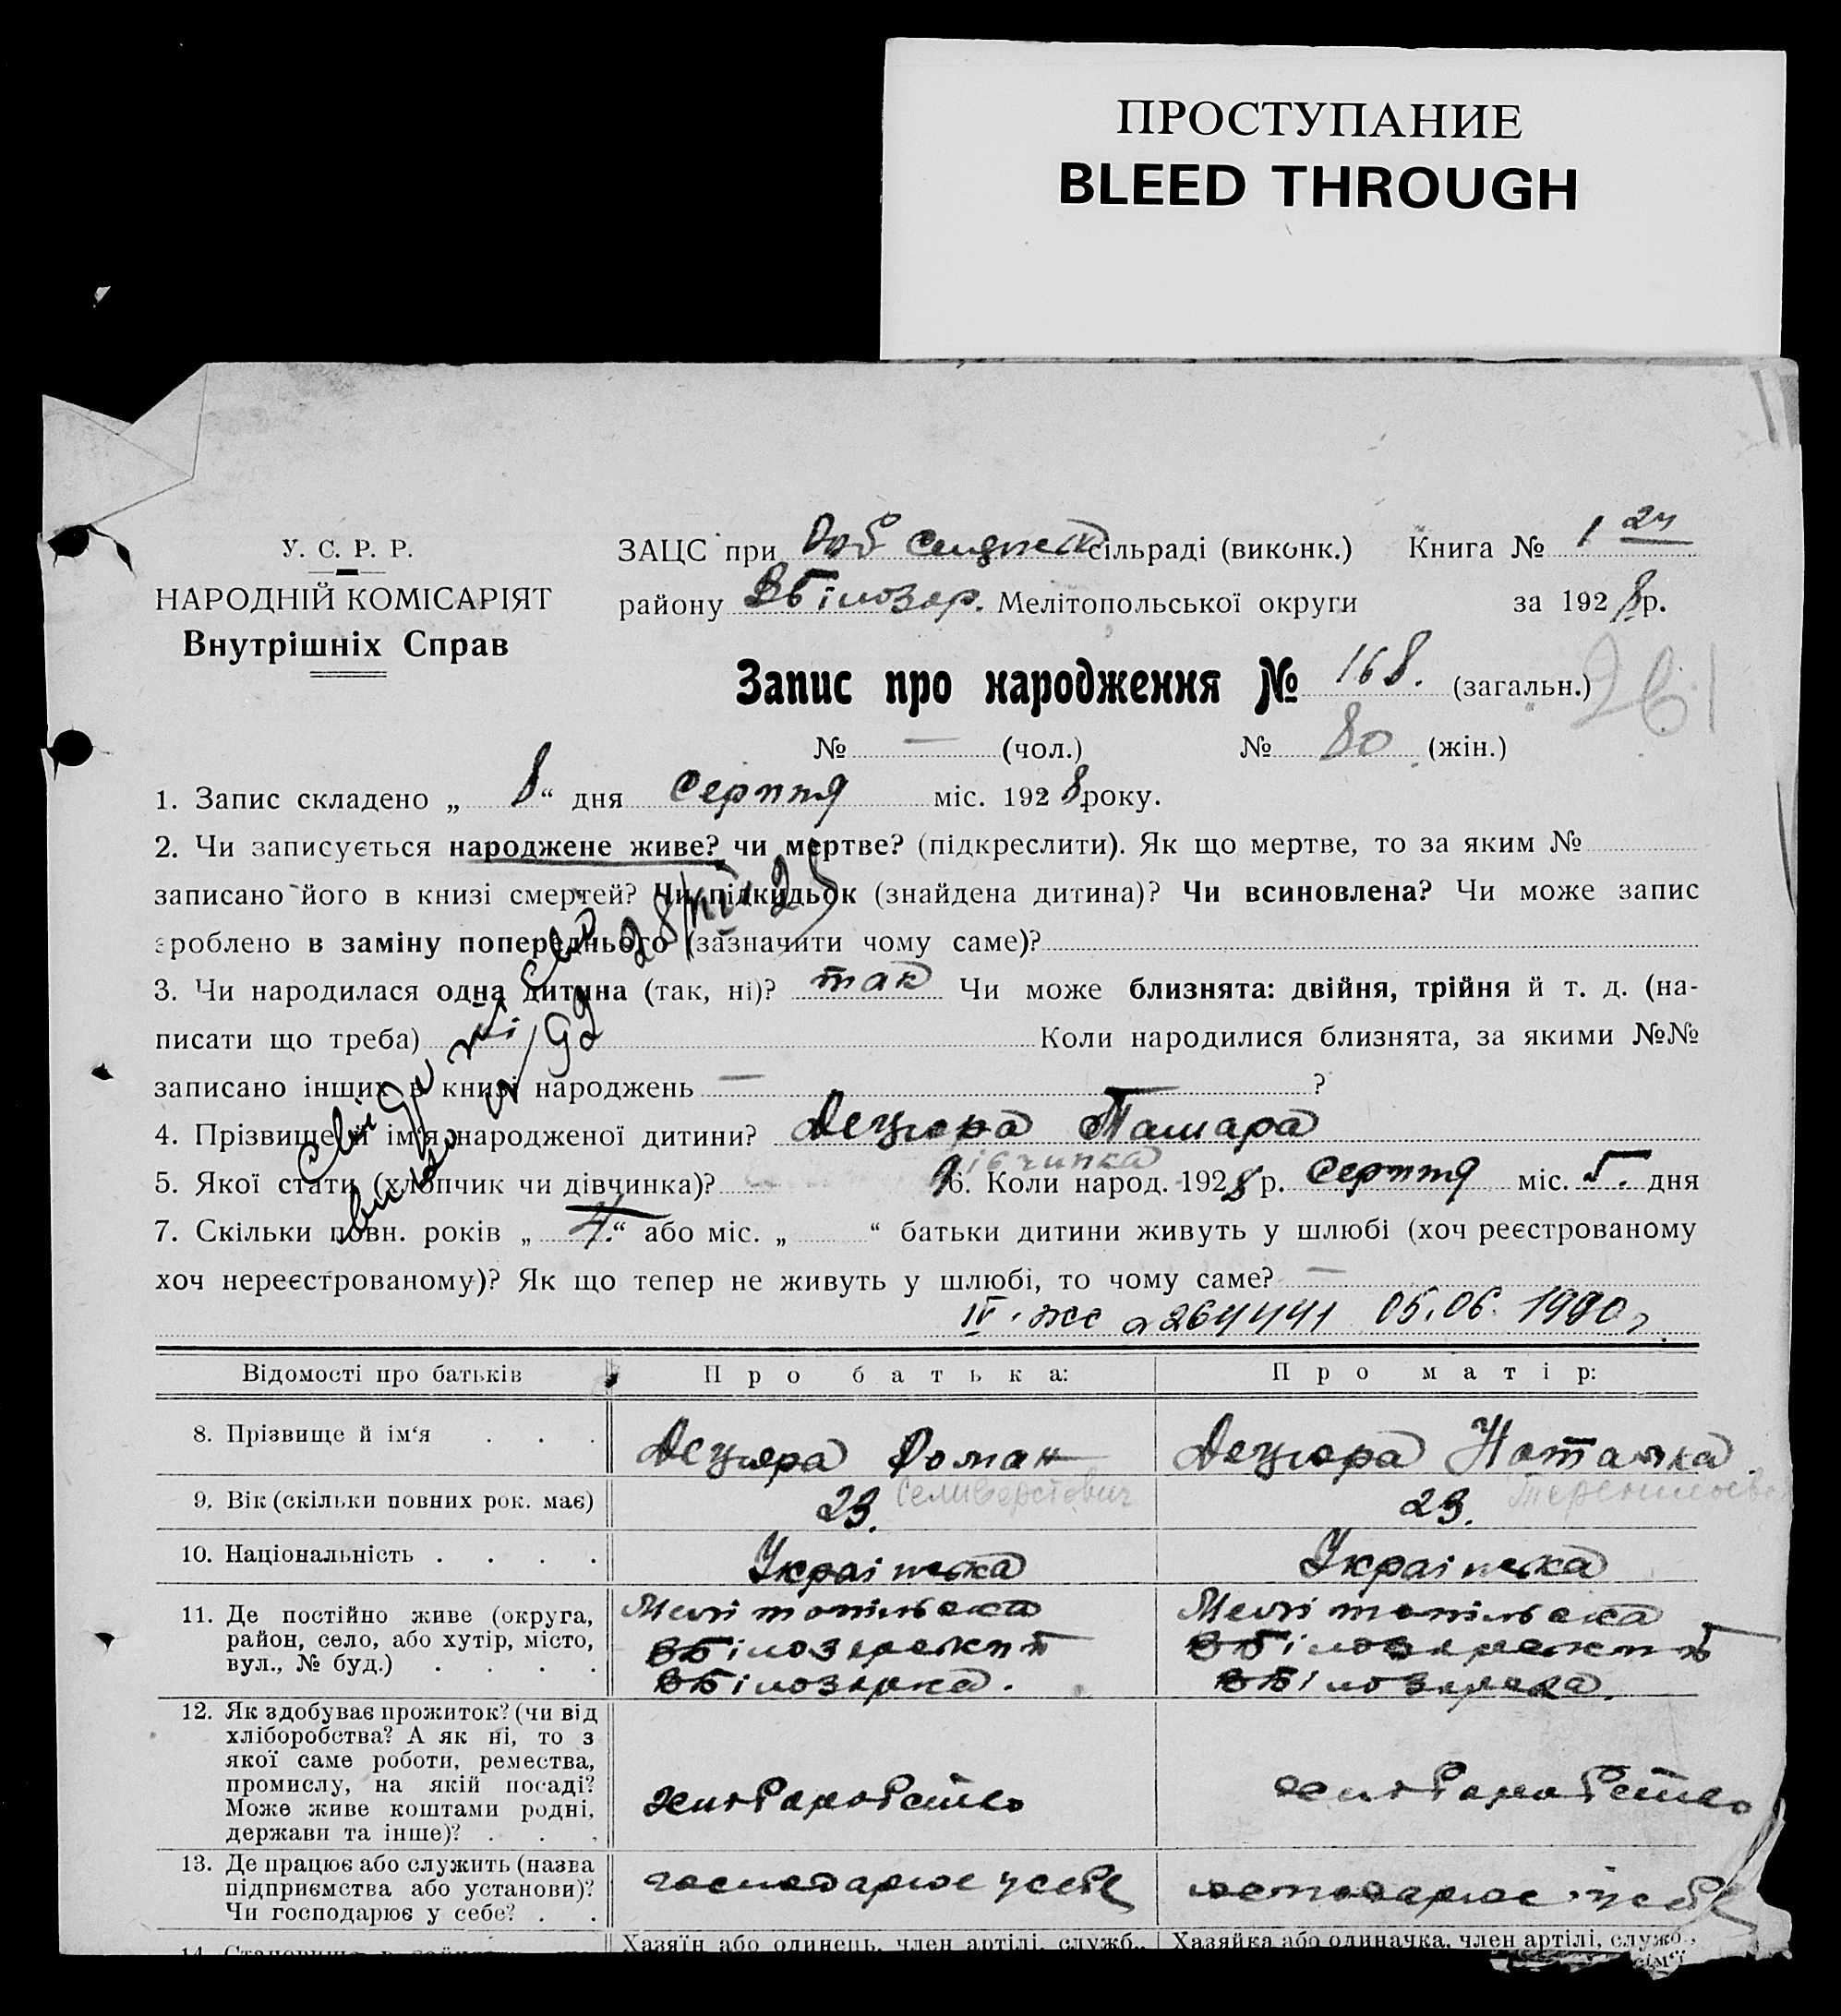 ПРОСТУПАНИЕ
BLEED THROUGH
У. С. Р. Р.
НАРОДНІЙ КОМІСАРІЯТ
Внутрішніх Справ
ЗАЦС при сільраді (виконк.) Книга № 1
району ВБілозер. Мелітопольської округи за 1928 р.
Запис про народження № 168. (загальн.) 261
№ — (чол.) № 80 (жін.)
1. Запис складено „ 8 “ дня Серпня міс. 1928 року.
2. Чи записується народжене живе? чи мертве? (підкреслити). Як що мертве, то за яким №
записано його в книзі смертей? Чи підкидьок (знайдена дитина)? Чи всиновлена? Чи може запис
зроблено в заміну попереднього (зазначити чому саме)?
3. Чи народилася одна дитина (так, ні)? так Чи може близнята: двійня, трійня й т. д. (на-
писати що треба) Коли народилися близнята, за якими №№
записано інших в книзі народжень — ?
4. Прізвище й ім'я народженої дитини? Децюра Тамара
5. Якої стати (хлопчик чи дівчинка)? дівчинка 6. Коли народ. 1928 р. Серпня міс. 5. дня
7. Скільки повн. років „ 4. “ або міс. „ “ батьки дитини живуть у шлюбі (хоч реєстрованому
хоч нереєстрованому)? Як що тепер не живуть у шлюбі, то чому саме? —
05.06. 1990 г.
Відомості про батьків Про батька: Про матір:
8. Прізвище й ім‘я . . . Децюра Роман Децюра Наталка
9. Вік (скільки повних рок. має) 23. Селиверстович 23.
10. Національність . . . . Українська Українська
11. Де постійно живе (округа, Мелітопільська Мелітопільська
район, село, або хутір, місто,
вул., № буд.) . . . . ВБілозерка. ВБілозерка.
12. Як здобуває прожиток? (чи від
хліборобства? А як ні, то з
якої саме роботи, ремества,
промислу, на якій посаді? хліборобство хліборобство
Може живе коштами родні,
держави та інше)? . . .
13. Де працює або служить (назва господарює у себе господарює у себе
підприємства або установи)?
Чи господарює у себе? . .
Хазяїн або одинець, член артілі, служб., Хазяйка або одиначка, член артілі, служб.,
сім‘ї